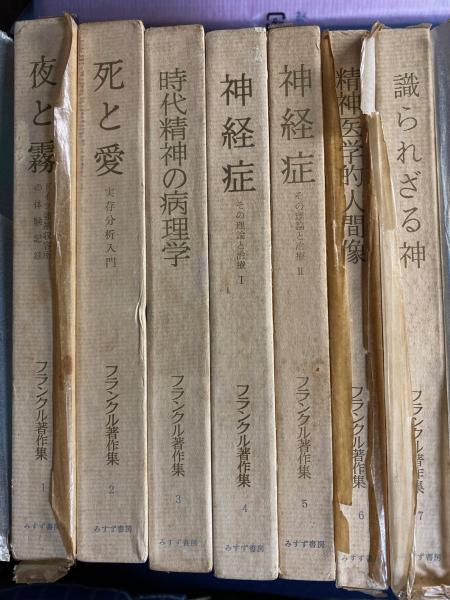 夜と霧
の体験記録
フランクル著作集
1
みすず書房
死と愛
実存分析入門
フランクル著作集
2
みすず書房
時代精神の病理学
フランクル著作集
3
みすず書房
神経症
その理論と治療 I
フランクル著作集
4
みすず書房
神経症
その理論と治療 II
フランクル著作集
5
みすず書房
精神医学的人間像
フランクル著作集
6
みすず書房
識られざる神
フランクル著作集
7
みすず書房